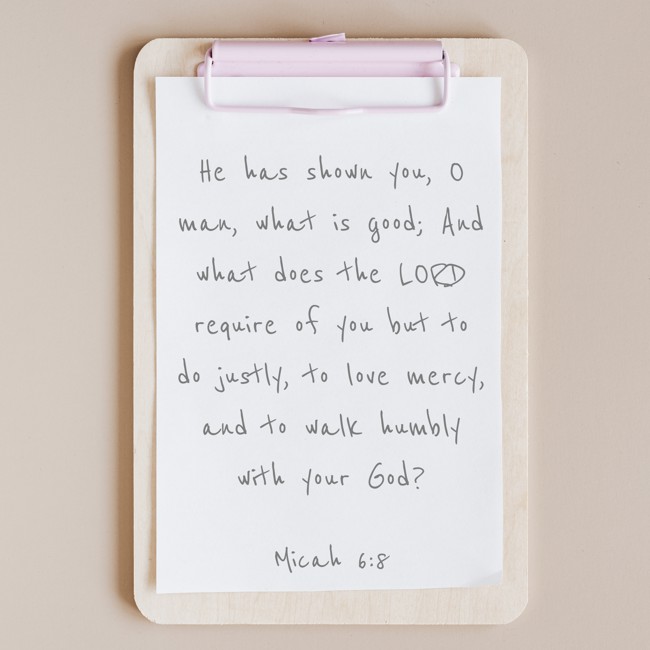 He has shown you, O
man, what is good; And
what does the LORD
require of you but to
do justly, to love mercy,
and to walk humbly
with your God?
Micah 6:8